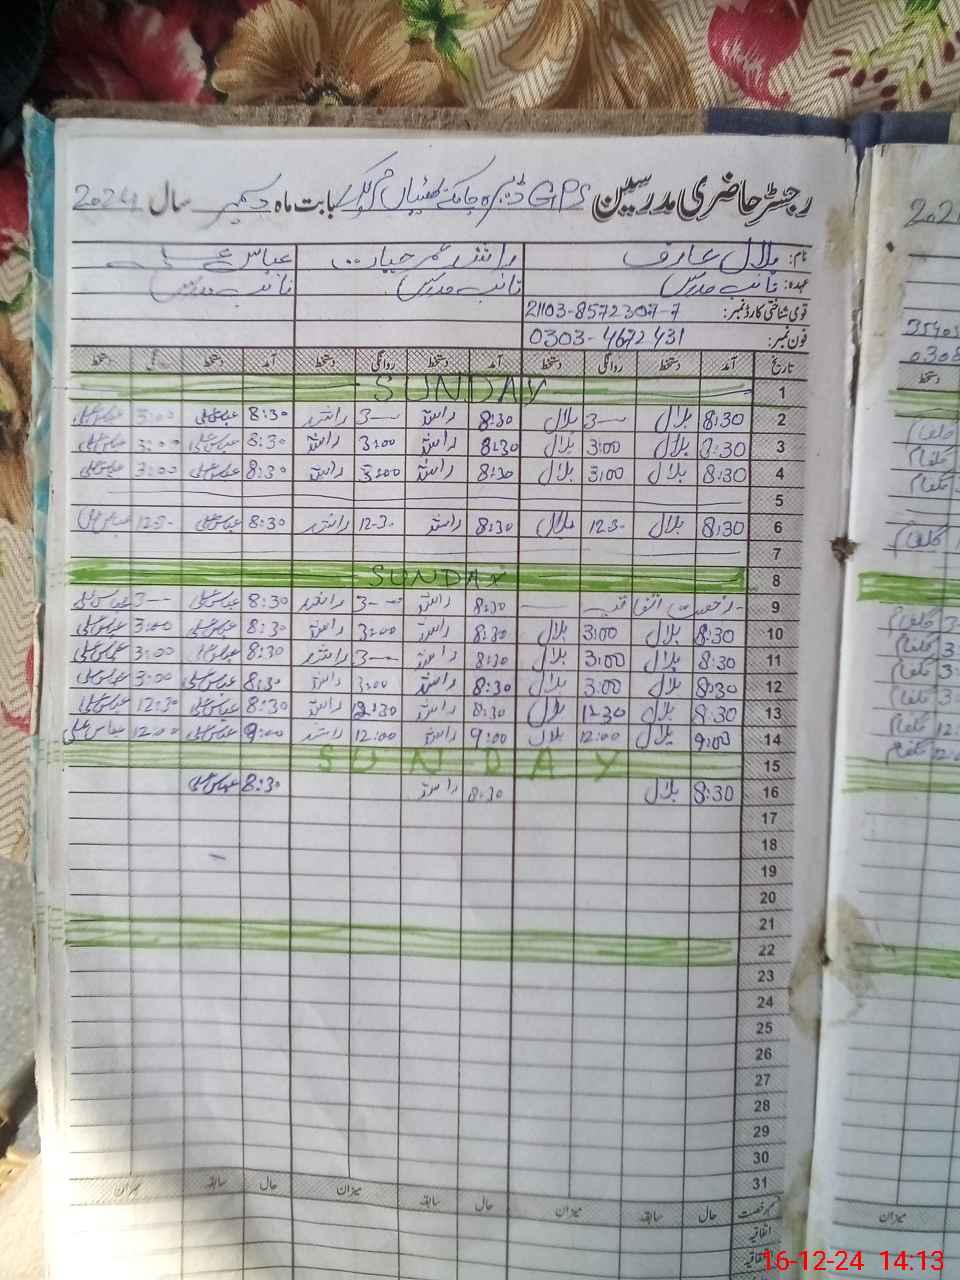 رجسٹر حاضری مدرسین GPS ڈیرہ جا بابت ماہ دسمبر سال 2024
نام: بلال عارف راشد عمر حیات عباس علی
عہدہ: نائب مدرس نائب مدرس نائب مدرس
قومی شناختی کارڈ نمبر: 21103-8572307-7
فون نمبر: 0303-4672431
تاریخ آمد دستخط روانگی دستخط آمد دستخط روانگی دستخط آمد دستخط روانگی دستخط
1 SUNDAY
2 8:30 بلال 3-- بلال 8:30 راشد 3-- راشد 8:30 عباس علی 3:00 عباس علی
3 8:30 بلال 3:00 بلال 8:30 راشد 3:00 راشد 8:30 عباس علی 3:00 عباس علی
4 8:30 بلال 3:00 بلال 8:30 راشد 3:00 راشد 8:30 عباس علی 3:00 عباس علی
5
6 8:30 بلال 12-30 بلال 8:30 راشد 12-30 راشد 8:30 عباس علی 12-30 عباس علی
7
8 SUNDAY
9 رخصت اتفاقیہ 8:30 راشد 3-- راشد 8:30 عباس علی 3-- عباس علی
10 8:30 بلال 3:00 بلال 8:30 راشد 3:00 راشد 8:30 عباس علی 3:00 عباس علی
11 8:30 بلال 3:00 بلال 8:30 راشد 3-- راشد 8:30 عباس علی 3:00 عباس علی
12 8:30 بلال 3:00 بلال 8:30 راشد 3:00 راشد 8:30 عباس علی 3:00 عباس علی
13 8:30 بلال 12:30 بلال 8:30 راشد 12:30 راشد 8:30 عباس علی 12:30 عباس علی
14 9:00 بلال 12:00 بلال 9:00 راشد 12:00 راشد 9:00 عباس علی 12:00 عباس علی
15 SUNDAY
16 8:30 بلال 8:30 راشد 8:30 عباس علی
17
18
19
20
21
22
23
24
25
26
27
28
29
30
31
نمبر رخصت حال سابقہ میزان حال سابقہ میزان حال سابقہ میزان
اتفاقیہ
16-12-24 14:13